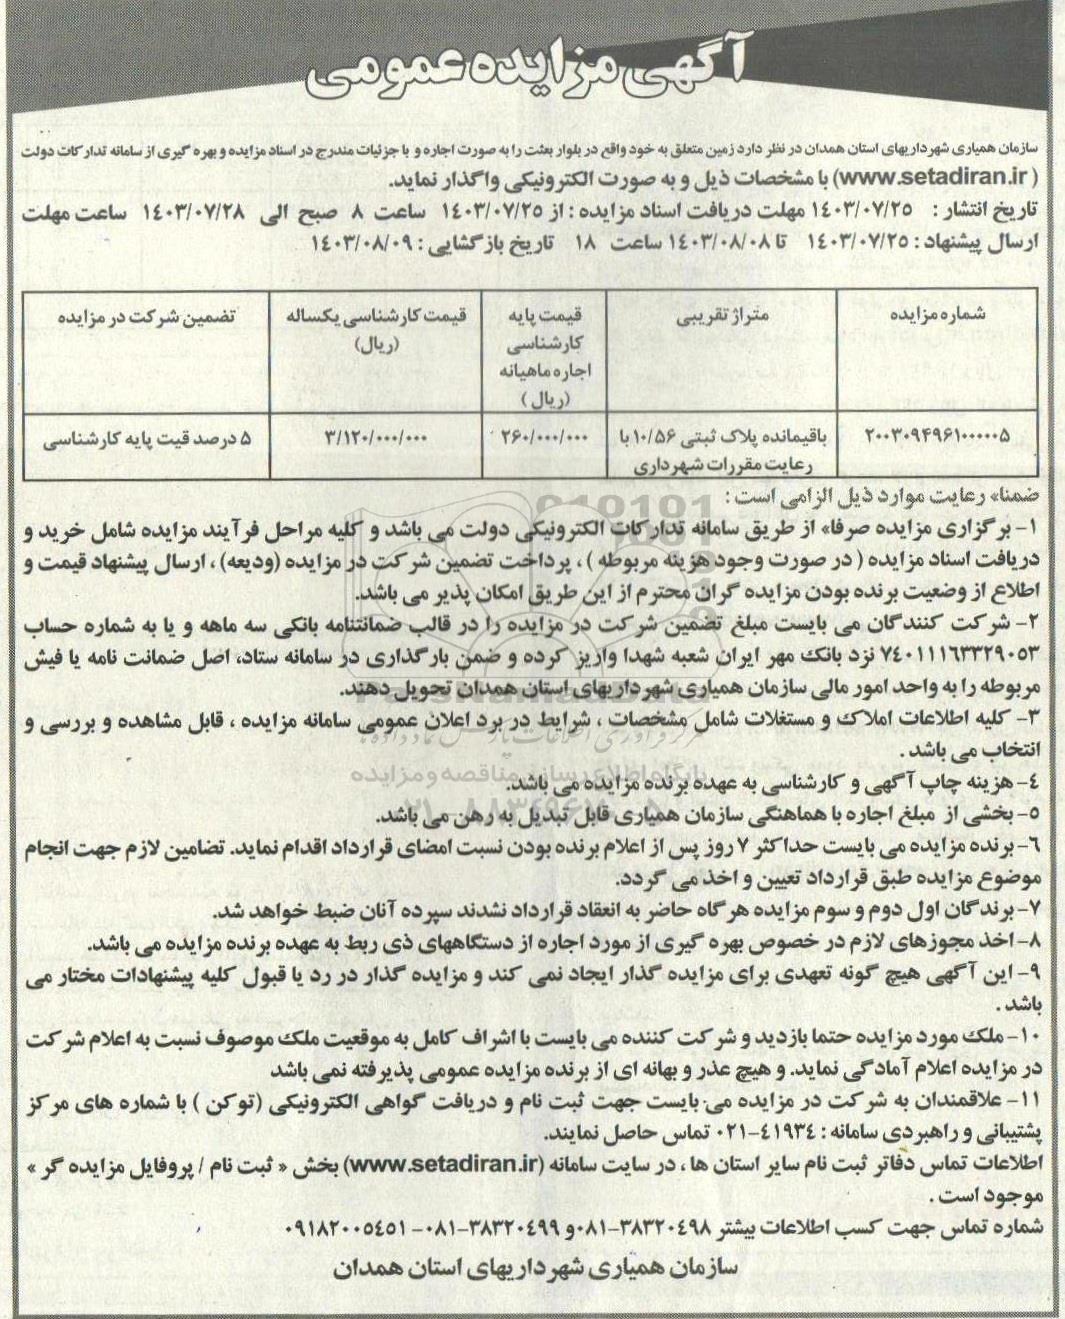 آگهی مزایده عمومی
سازمان همیاری شهرداریهای استان همدان در نظر دارد زمین متعلق به خود واقع در بلوار بعثت را به صورت اجاره و با جزئیات مندرج در اسناد مزایده و بهره گیری از سامانه تدارکات دولت
( www.setadiran.ir) با مشخصات ذیل و به صورت الکترونیکی واگذار نماید.
تاریخ انتشار : ۱۴۰۳/۰۷/۲۵ مهلت دریافت اسناد مزایده : از ۱۴۰۳/۰۷/۲۵ ساعت ۸ صبح الی ۱۴۰۳/۰۷/۲۸ ساعت مهلت
ارسال پیشنهاد : ۱۴۰۳/۰۷/۲۵ تا ۱۴۰۳/۰۸/۰۸ ساعت ۱۸ تاریخ بازگشایی : ۱۴۰۳/۰۸/۰۹
شماره مزایده | متراژ تقریبی | قیمت پایه کارشناسی اجاره ماهیانه (ریال ) | قیمت کارشناسی یکساله (ریال) | تضمین شرکت در مزایده
۲۰۰۳۰۹۴۹۶۱۰۰۰۰۰۵ | باقیمانده پلاک ثبتی ۱۰/۵۶ با رعایت مقررات شهرداری | ۲۶۰/۰۰۰/۰۰۰ | ۳/۱۲۰/۰۰۰/۰۰۰ | ۵ درصد قیت پایه کارشناسی
ضمنا» رعایت موارد ذیل الزامی است :
۱- برگزاری مزایده صرفا» از طریق سامانه تدارکات الکترونیکی دولت می باشد و کلیه مراحل فرآیند مزایده شامل خرید و
دریافت اسناد مزایده ( در صورت وجود هزینه مربوطه ) ، پرداخت تضمین شرکت در مزایده (ودیعه) ، ارسال پیشنهاد قیمت و
اطلاع از وضعیت برنده بودن مزایده گران محترم از این طریق امکان پذیر می باشد.
۲- شرکت کنندگان می بایست مبلغ تضمین شرکت در مزایده را در قالب ضمانتنامه بانکی سه ماهه و یا به شماره حساب
۷۴۰۱۱۱۶۳۳۲۹۰۵۳ نزد بانک مهر ایران شعبه شهدا واریز کرده و ضمن بارگذاری در سامانه ستاد، اصل ضمانت نامه یا فیش
مربوطه را به واحد امور مالی سازمان همیاری شهرداریهای استان همدان تحویل دهند.
۳- کلیه اطلاعات املاک و مستغلات شامل مشخصات ، شرایط در برد اعلان عمومی سامانه مزایده ، قابل مشاهده و بررسی و
انتخاب می باشد .
۴- هزینه چاپ آگهی و کارشناسی به عهده برنده مزایده می باشد.
۵- بخشی از مبلغ اجاره با هماهنگی سازمان همیاری قابل تبدیل به رهن می باشد.
۶- برنده مزایده می بایست حداکثر ۷ روز پس از اعلام برنده بودن نسبت امضای قرارداد اقدام نماید. تضامین لازم جهت انجام
موضوع مزایده طبق قرارداد تعیین و اخذ می گردد.
۷- برندگان اول دوم و سوم مزایده هرگاه حاضر به انعقاد قرارداد نشدند سپرده آنان ضبط خواهد شد.
۸- اخذ مجوزهای لازم در خصوص بهره گیری از مورد اجاره از دستگاههای ذی ربط به عهده برنده مزایده می باشد.
۹- این آگهی هیچ گونه تعهدی برای مزایده گذار ایجاد نمی کند و مزایده گذار در رد یا قبول کلیه پیشنهادات مختار می
باشد .
۱۰- ملک مورد مزایده حتما بازدید و شرکت کننده می بایست با اشراف کامل به موقعیت ملک موصوف نسبت به اعلام شرکت
در مزایده اعلام آمادگی نماید. و هیچ عذر و بهانه ای از برنده مزایده عمومی پذیرفته نمی باشد
۱۱- علاقمندان به شرکت در مزایده می بایست جهت ثبت نام و دریافت گواهی الکترونیکی (توکن ) با شماره های مرکز
پشتیبانی و راهبردی سامانه : ۴۱۹۳۴-۰۲۱ تماس حاصل نمایند.
اطلاعات تماس دفاتر ثبت نام سایر استان ها ، در سایت سامانه (www.setadiran.ir) بخش « ثبت نام / پروفایل مزایده گر »
موجود است .
شماره تماس جهت کسب اطلاعات بیشتر ۳۸۳۲۰۴۹۸-۰۸۱ و ۳۸۳۲۰۴۹۹-۰۸۱ - ۰۹۱۸۲۰۰۵۴۵۱
سازمان همیاری شهرداریهای استان همدان